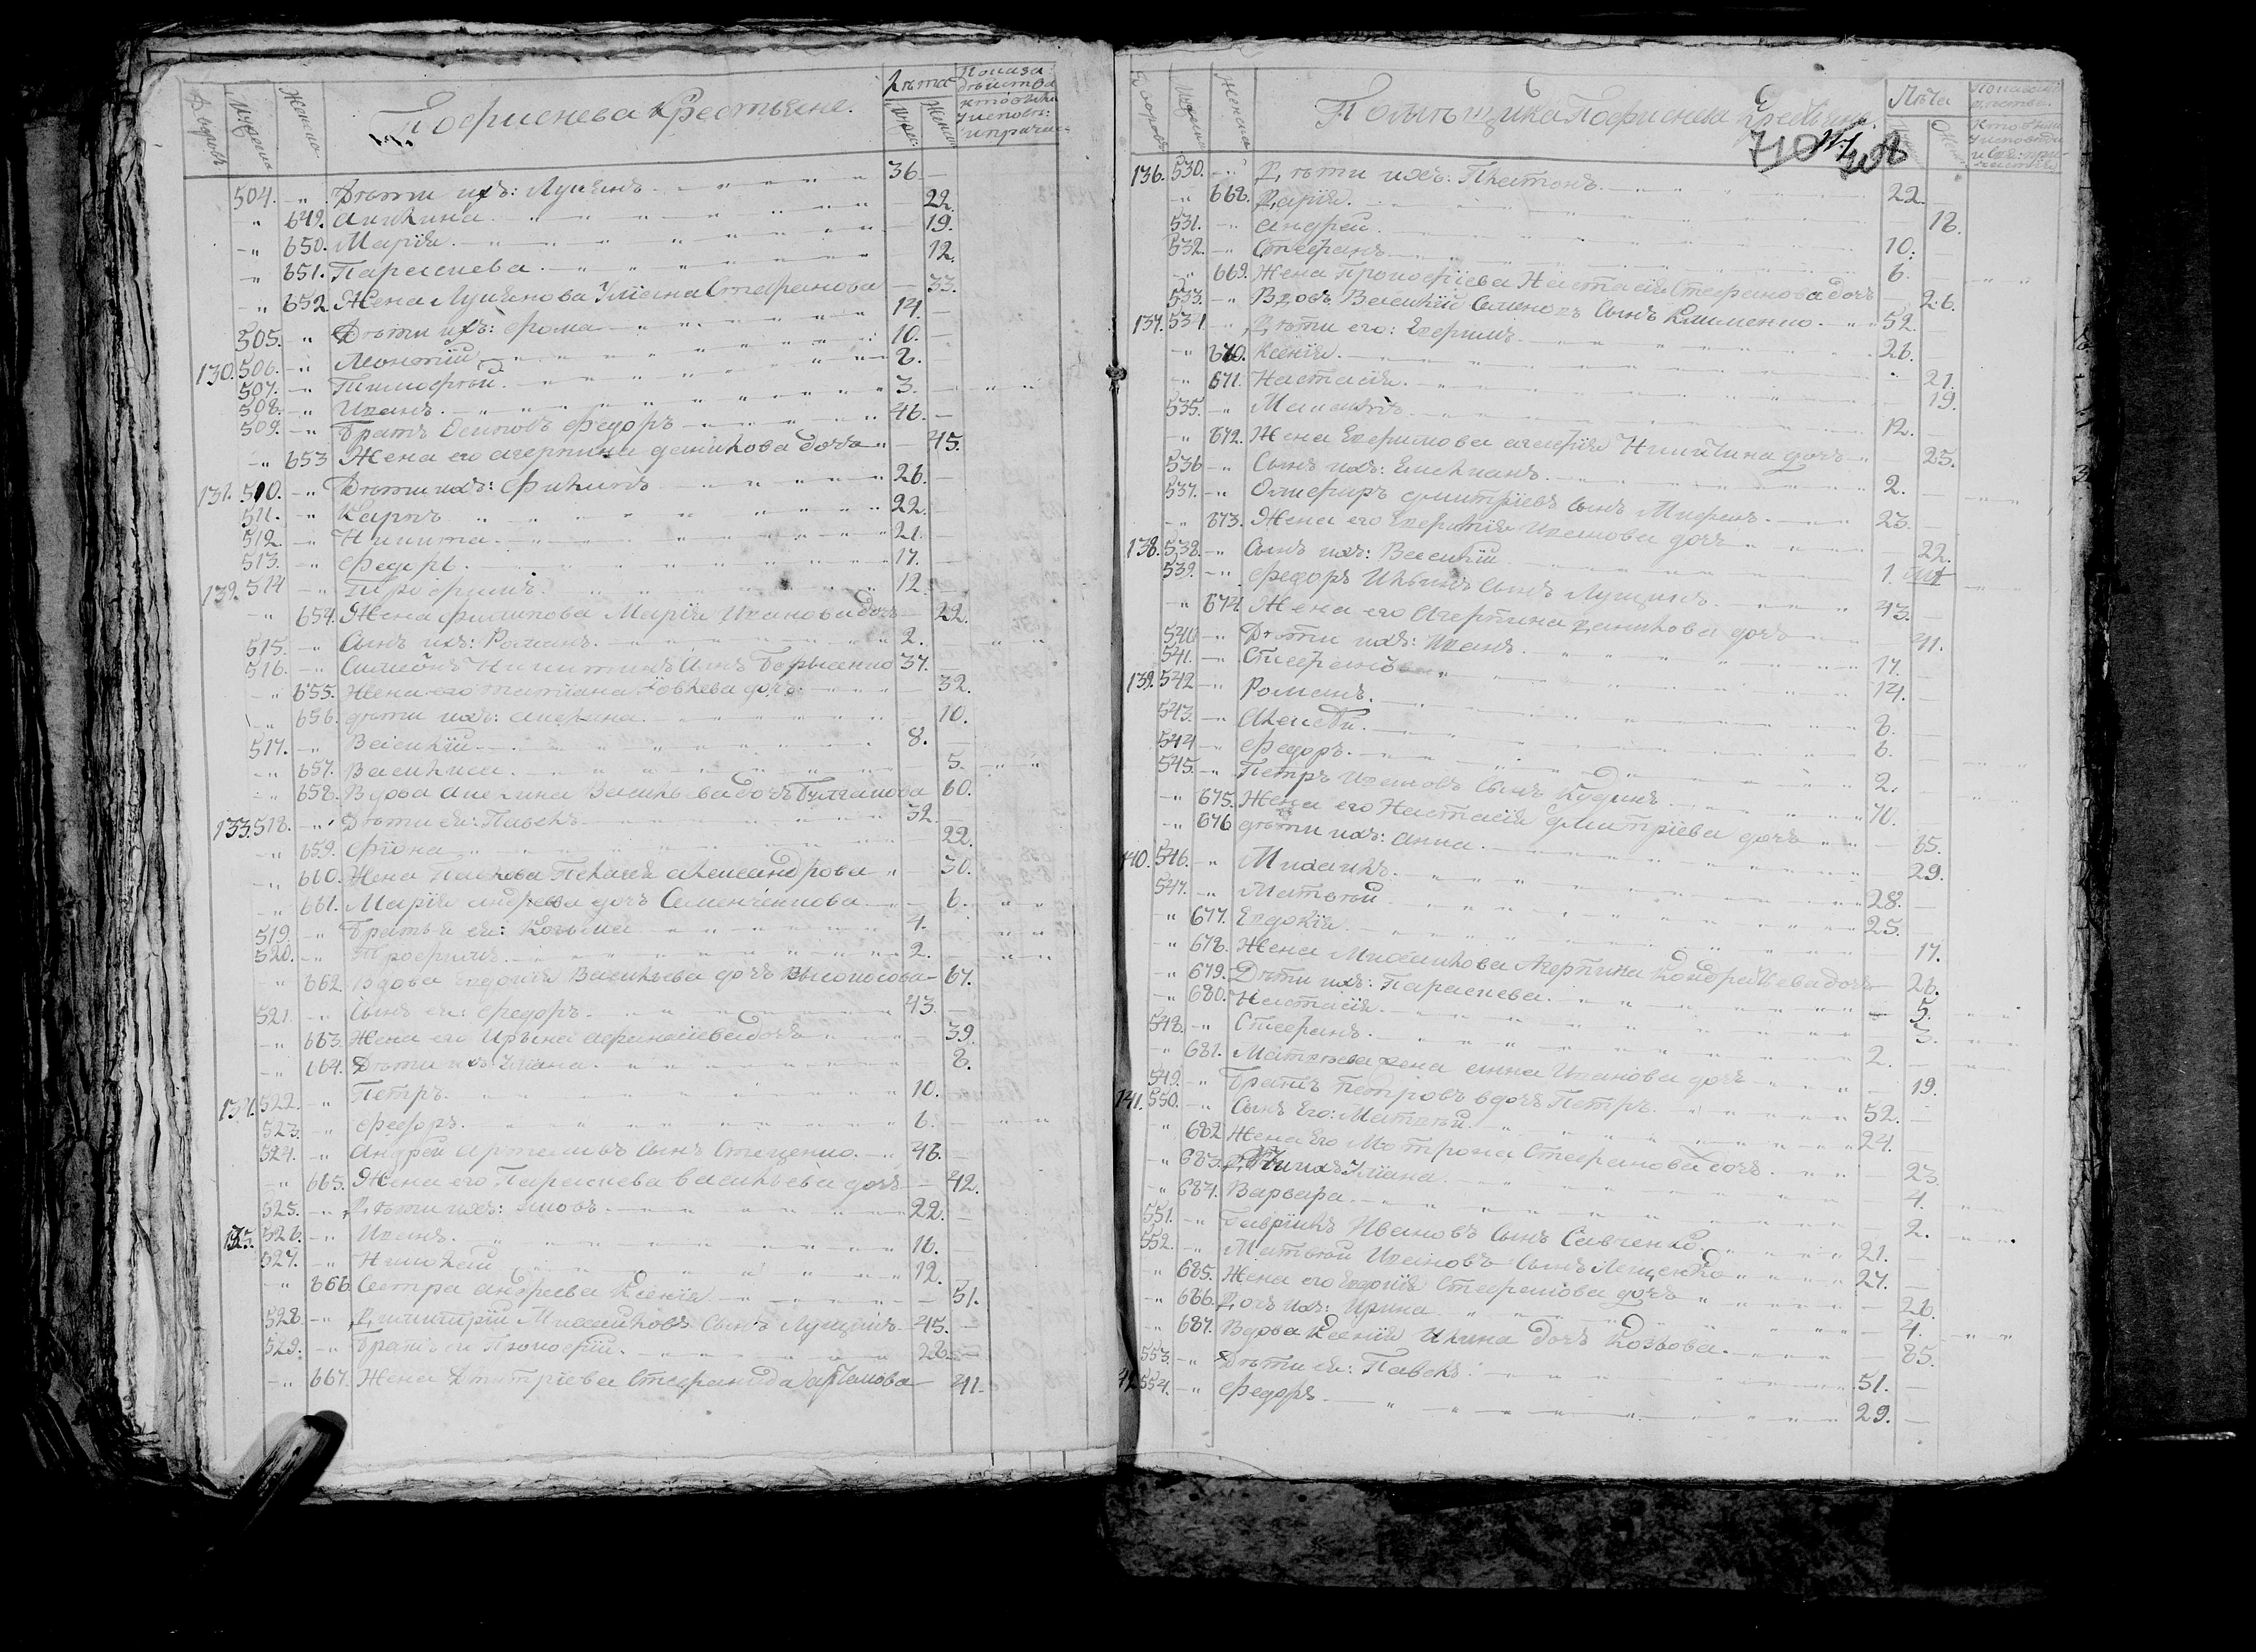 Дворовъ Мужеска Женска Крестьяне. Лѣта Мужес: Женск:
504. Дѣти ихъ: Лукьянъ 36.
649. Акилина 22.
650. Марія 19.
651. Параскева 12.
652. Жена Лукянова Уліана Стефанова 33.
505. Дѣти ихъ: Фома 14.
130. 506. Леонтій 10.
507. Тимофѣй 8.
508. Иванъ 3.
509. Братъ Осиповъ Федоръ 46.
653. Жена его Агерпина Данилова дочь 45.
131. 510. Дѣти ихъ: Филипъ 26.
511. Карпъ 22.
512. Никита 21.
513. Федоръ 17.
514. Трофимъ 12.
654. Жена Филипова Марія Иванова дочь 22.
515. Сынъ ихъ: Романъ 2.
516. Симеонъ Никитинъ Сынъ Борысенко 37.
655. Жена его Татиана Іовлева дочь 32.
656. Дѣти ихъ: Акилина 10.
517. Василій 8.
657. Василиса 5.
658. Вдова Акилина Васильева дочь 60.
133. 518. Дѣти ея: Павелъ 32.
659. Фіона 22.
660. Жена Павлова Пелагея Александрова 30.
661. Марія Андреева дочь Семенченкова 6.
519. Братья ея: Козьма 4.
520. Трофимъ 2.
662. Вдова Евдокія Васильева дочь 67.
521. Сынъ ея: Федоръ 43.
663. Жена его Ирына Афанасіева дочь 39.
164. Дѣти ихъ: Уліана 8.
134. 522. Петръ 10.
523. Федоръ 6.
524. Андрей Артемовъ Сынъ Стеценко 46.
665. Жена его Параскева Васильева дочь 42.
525. Дѣти ихъ: Яковъ 22.
135. 526. Иванъ 16.
527. Николай 12.
666. Сестра Андреева Ксенія 51.
528. Димитрій Михайловъ Сынъ Лущикъ 45.
529. Братъ его Прокофій 28.
667. Жена Дмитріева Стефанида 41.
Дворовъ Мужеска Женска Помѣщика Крестьяне. Лѣта
710 708
136. 530. Дѣти ихъ: Платонъ 22.
668. Дарія 18.
531. Андрей 10.
532. Стефанъ 6.
669. Жена Прокофіева Настасія Стефанова дочь 26.
533. Вдовъ Василій Семіоновъ Сынъ Клименко 52.
137. 534. Дѣти его: Ефримъ 26.
670. Ксенія 21.
671. Настасія 19.
535. Мануилъ 12.
672. Жена Ефримова Агафія Никитина дочь 25.
536. Сынъ ихъ: Емельянъ 2.
537. Олифиръ Дмитріевъ Сынъ 23.
673. Жена его Евфимія Иванова дочь 22.
138. 538. Сынъ ихъ: Василій 1.
539. Федоръ Ильинъ Сынъ Лущикъ 43.
674. Жена его Агерпина Данилова дочь 41.
540. Дѣти ихъ: Иванъ 17.
541. Стефанъ 14.
139. 542. Романъ 8.
543. Алексѣй 6.
544. Федоръ 2.
545. Петръ Ивановъ Сынъ Кудинъ 70.
675. Жена его Настасія Дмитріева дочь 65.
676. Дѣти ихъ: Анна 29.
140. 546. Михаилъ 28.
547. Матвѣй 25.
677. Евдокія 17.
678. Жена Михаилова Агерпина Кондратьева дочь 26.
679. Дѣти ихъ: Параскева 5.
680. Настасія 3.
548. Стефанъ 2.
681. Матвѣева жена Анна Иванова дочь 19.
549. Братъ Петровъ вдовъ Петръ 52.
141. 550. Сынъ Его: Матвѣй 24.
682. Жена Его Мотрона Стефанова дочь 23.
683. Дѣти ихъ Уліана 4.
684. Варвара 2.
551. Гавріилъ Ивановъ Сынъ Савченко 21.
552. Матвѣй Ивановъ Сынъ Лещенко 27.
685. Жена его Евдокія Стефанова дочь 26.
686. Дочь ихъ: Ирина 4.
687. Вдова Ксенія Ильина дочь Козлова 85.
553. Дѣти ея: Павелъ 51.
554. Федоръ 29.